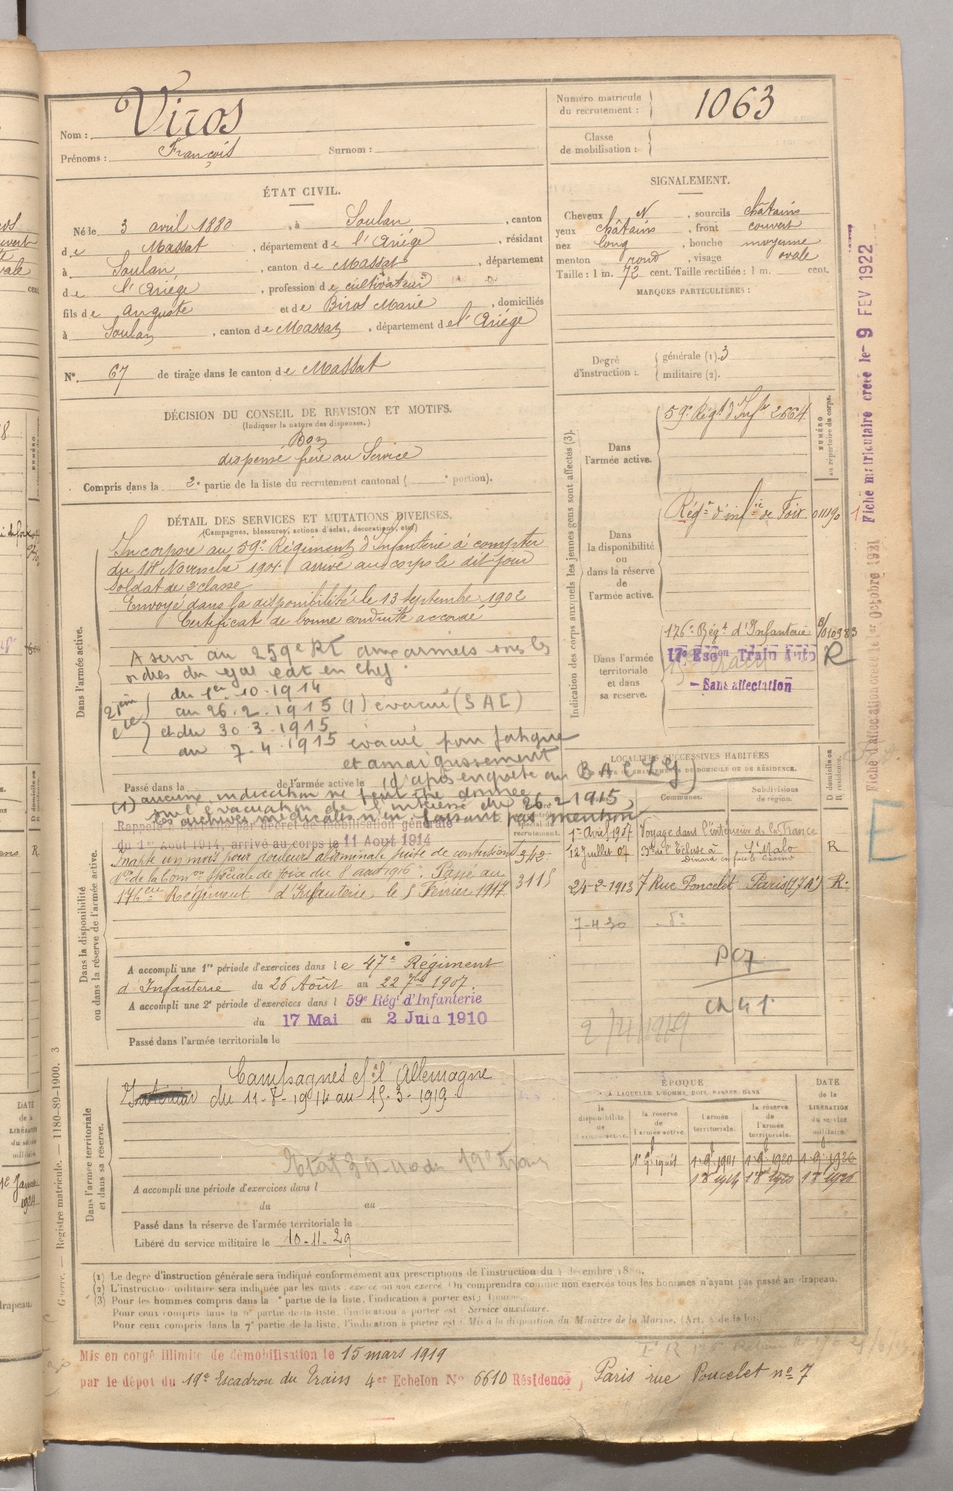 Nom : Viros
Prénoms : François Surnom :
Numéro matricule du recrutement : 1063
Classe de mobilisation :
ÉTAT CIVIL.
Né le 3 avril 1880, à Soulan, canton
de Massat, département de l'Ariége, résidant
à Soulan, canton de Massat, département
de l'Ariége, profession de cultivateur
fils de Auguste et de Biros Marie, domiciliés
à Soulan, canton de Massat, département de l'Ariége
N° 67 de tirage dans le canton de Massat
SIGNALEMENT.
Cheveux N, sourcils châtains
yeux châtains, front couvert
nez long, bouche moyenne
menton rond, visage ovale
Taille : 1 m. 72 cent. Taille rectifiée : 1 m. cent.
MARQUES PARTICULIÈRES :
Degré d'instruction : générale (1). 3
militaire (2).
DÉCISION DU CONSEIL DE REVISION ET MOTIFS.
(Indiquer la nature des dispenses.)
Bon
dispensé frère au Service
Compris dans la 2e partie de la liste du recrutement cantonal ( portion).
DÉTAIL DES SERVICES ET MUTATIONS DIVERSES.
(Campagnes, blessures, actions d'éclat, décorations, etc.)
Dans l'armée active.
Incorporé au 59e Régiment d'Infanterie à compter
du Novembre 1901. arrivé au corps le dit jour
soldat de 2e classe
Envoyé dans la disponibilité le 13 Septembre 1902
Certificat de bonne conduite accordé
A servi au 259e RI aux armées sous les
ordres du gal Cdt en Chef
du 1er-10-1914
au 26.2.1915 (1) évacué
et du 30.3.1915
au 7.4.1915 évacué pour fatigue
et amaigrissement
Passé dans la de l'armée active le (d'après enquête au
(1) aucune indication ne peut être donnée
sur l'évacuation de l'intéressé du 26.2.1915,
les archives médicales n'en faisant pas mention
Rappelé à l'activité par décret de mobilisation générale
du 1er Août 1914, arrivé au corps le 11 Aout 1914
Inapte un mois pour douleurs abdominale suite de contusions
Son de la Com on Spéciale de Foix du 8 août 1916. Passé au
176eme Régiment d'Infanterie, le 5 Février 1917
Dans la disponibilité ou dans la réserve de l'armée active.
A accompli une 1re période d'exercices dans le 47e Régiment
d'Infanterie du 26 Août au 22 7bre 1907.
A accompli une 2e période d'exercices dans l 59e Régt d'Infanterie
du 17 Mai au 2 Juin 1910
Passé dans l'armée territoriale le
Dans l'armée territoriale et dans sa réserve.
Campagnes Ct l'Allemagne
du 11-8-1914 au 15-3-1919
A accompli une période d'exercices dans l
du au
Passé dans la réserve de l'armée territoriale le
Libéré du service militaire le 10-11-29
Indication des corps auxquels les jeunes gens sont affectés (3).
NUMÉRO au répertoire du corps.
Dans l'armée active. 59e Régt d'Infie 2664
Dans la disponibilité ou dans la réserve de l'armée active. Régt d'infie de Foix
Dans l'armée territoriale et dans sa réserve. 176e Régt d'Infanterie
17e Escon Train Auto R
- Sans affectation
LOCALITÉS SUCCESSIVES HABITÉES
Communes. Subdivisions de région. D domicile ou R résidence.
1er Avril 1907 Voyage dans l'intérieur de la France
12 Juillet 07 St Malo R
Dinard en face le Casino
24-2-1913 7 Rue Poncelet Paris (17 Ar) R.
7-4-30 do
ÉPOQUE
À LAQUELLE L'HOMME DOIT PASSER DANS
DATE de la LIBÉRATION du service militaire.
la disponibilité de l'armée active.
la réserve de l'armée active.
l'armée territoriale.
la réserve de l'armée territoriale.
(1) Le degré d'instruction générale sera indiqué conformément aux prescriptions de l'instruction du décembre
(2) L'instruction militaire sera indiquée par les mots : exercé ou non exercé. On comprendra comme non exercés tous les hommes n'ayant pas passé au drapeau.
(3) Pour les hommes compris dans la partie de la liste, l'indication à porter est :
Pour ceux compris dans la partie de la liste, l'indication à porter est : Service auxiliaire.
Pour ceux compris dans la 7e partie de la liste, l'indication à porter est : Mis à la disposition du Ministre de la Marine.
Mis en congé illimité de démobilisation le 15 mars 1919
par le dépôt du 19e Escadron du Train 4er Echelon No 6610 Résidence, Paris rue Poncelet no 7
Guerre. — Registre matricule. — 1180-89-1900. 3
Fiche matriculaire créée le - 9 FEV 1922
Fiche d'affectation créée le 1er Octobre 1921
E